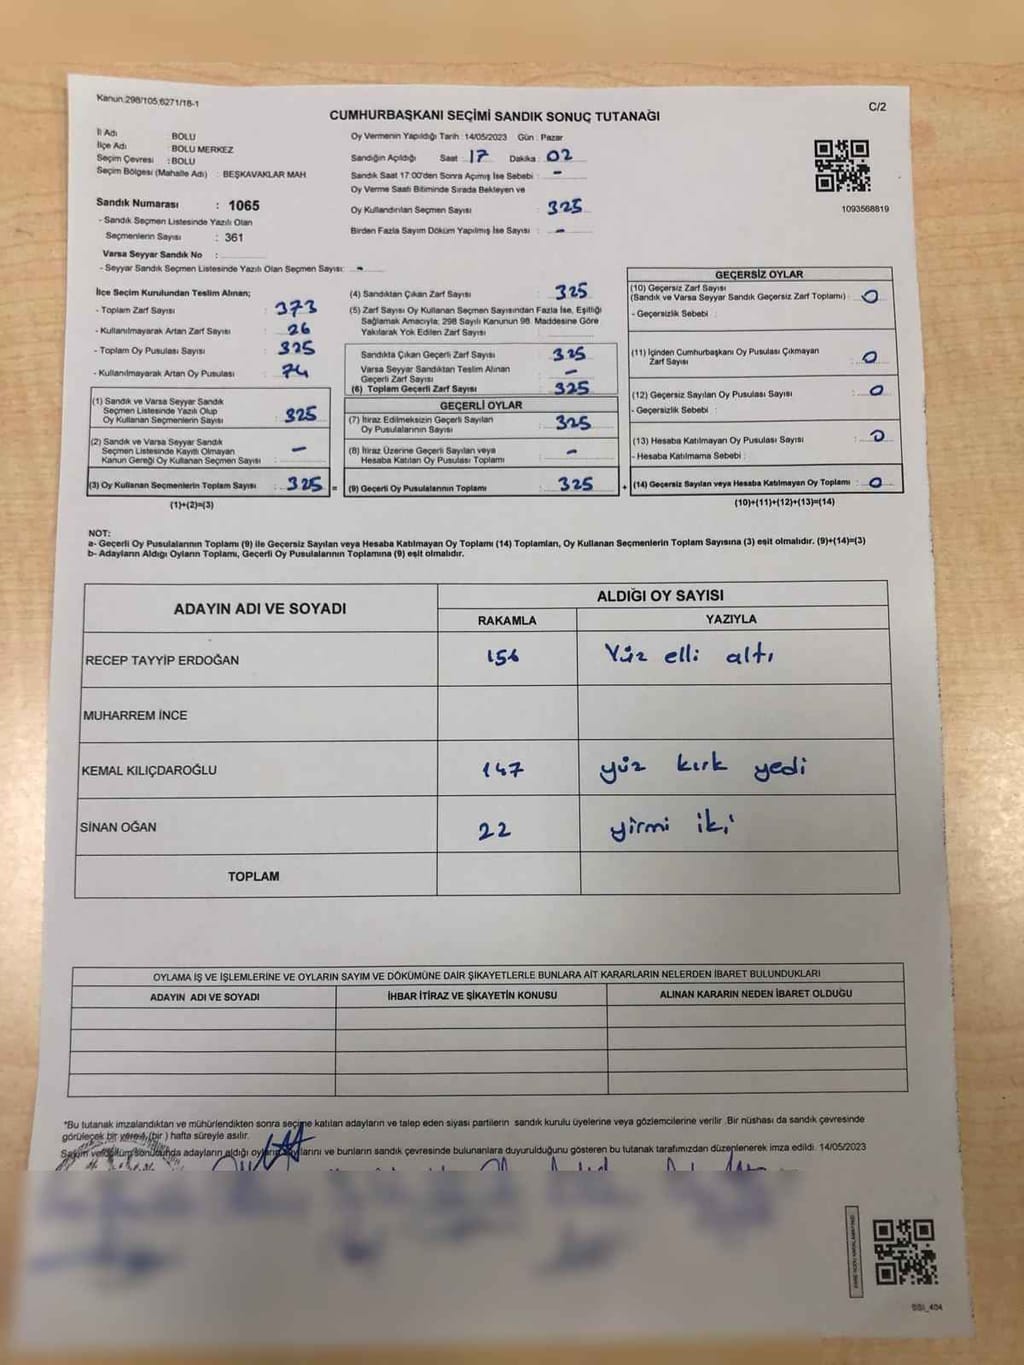 Kanun:298/105,6271/18-1
C/2
CUMHURBAŞKANI SEÇİMİ SANDIK SONUÇ TUTANAĞI
İl Adı : BOLU
İlçe Adı : BOLU MERKEZ
Seçim Çevresi : BOLU
Seçim Bölgesi (Mahalle Adı) : BEŞKAVAKLAR MAH
Sandık Numarası : 1065
- Sandık Seçmen Listesinde Yazılı Olan
Seçmenlerin Sayısı : 361
Varsa Seyyar Sandık No :
- Seyyar Sandık Seçmen Listesinde Yazılı Olan Seçmen Sayısı: -
Oy Vermenin Yapıldığı Tarih : 14/05/2023 Gün : Pazar
Sandığın Açıldığı Saat 17 Dakika : 02
Sandık Saat 17:00'den Sonra Açımış İse Sebebi : -
Oy Verme Saati Bitiminde Sırada Bekleyen ve
Oy Kullandırılan Seçmen Sayısı : 325
Birden Fazla Sayım Döküm Yapılmış İse Sayısı : -
1093568819
İlçe Seçim Kurulundan Teslim Alınan;
- Toplam Zarf Sayısı : 373
- Kullanılmayarak Artan Zarf Sayısı : 26
- Toplam Oy Pusulası Sayısı : 325
- Kullanılmayarak Artan Oy Pusulası : 74
(1) Sandık ve Varsa Seyyar Sandık
Seçmen Listesinde Yazılı Olup
Oy Kullanan Seçmenlerin Sayısı : 325
(2) Sandık ve Varsa Seyyar Sandık
Seçmen Listesinde Kayıtlı Olmayan
Kanun Gereği Oy Kullanan Seçmen Sayısı : -
(3) Oy Kullanan Seçmenlerin Toplam Sayısı : 325 =
(1)+(2)=(3)
(4) Sandıktan Çıkan Zarf Sayısı : 325
(5) Zarf Sayısı Oy Kullanan Seçmen Sayısından Fazla İse, Eşitliği
Sağlamak Amacıyla; 298 Sayılı Kanunun 98. Maddesine Göre
Yakılarak Yok Edilen Zarf Sayısı :
Sandıkta Çıkan Geçerli Zarf Sayısı : 325
Varsa Seyyar Sandıktan Teslim Alınan
Geçerli Zarf Sayısı : -
(6) Toplam Geçerli Zarf Sayısı : 325
GEÇERLİ OYLAR
(7) İtiraz Edilmeksizin Geçerli Sayılan
Oy Pusulalarının Sayısı : 325
(8) İtiraz Üzerine Geçerli Sayılan veya
Hesaba Katılan Oy Pusulası Toplamı : -
(9) Geçerli Oy Pusulalarının Toplamı : 325 +
GEÇERSİZ OYLAR
(10) Geçersiz Zarf Sayısı
(Sandık ve Varsa Seyyar Sandık Geçersiz Zarf Toplamı) : 0
- Geçersizlik Sebebi :
(11) İçinden Cumhurbaşkanı Oy Pusulası Çıkmayan
Zarf Sayısı : 0
(12) Geçersiz Sayılan Oy Pusulası Sayısı : 0
- Geçersizlik Sebebi :
(13) Hesaba Katılmayan Oy Pusulası Sayısı : 0
- Hesaba Katılmama Sebebi :
(14) Geçersiz Sayılan veya Hesaba Katılmayan Oy Toplamı : 0
(10)+(11)+(12)+(13)=(14)
NOT:
a- Geçerli Oy Pusulalarının Toplamı (9) ile Geçersiz Sayılan veya Hesaba Katılmayan Oy Toplamı (14) Toplamları, Oy Kullanan Seçmenlerin Toplam Sayısına (3) eşit olmalıdır. (9)+(14)=(3)
b- Adayların Aldığı Oyların Toplamı, Geçerli Oy Pusulalarının Toplamına (9) eşit olmalıdır.
ADAYIN ADI VE SOYADI
ALDIĞI OY SAYISI
RAKAMLA YAZIYLA
RECEP TAYYİP ERDOĞAN 156 Yüz elli altı
MUHARREM İNCE
KEMAL KILIÇDAROĞLU 147 yüz kırk yedi
SİNAN OĞAN 22 yirmi iki
TOPLAM
OYLAMA İŞ VE İŞLEMLERİNE VE OYLARIN SAYIM VE DÖKÜMÜNE DAİR ŞİKAYETLERLE BUNLARA AİT KARARLARIN NELERDEN İBARET BULUNDUKLARI
ADAYIN ADI VE SOYADI İHBAR İTİRAZ VE ŞİKAYETİN KONUSU ALINAN KARARIN NEDEN İBARET OLDUĞU
*Bu tutanak imzalandıktan ve mühürlendikten sonra seçime katılan adayların ve talep eden siyasi partilerin sandık kurulu üyelerine veya gözlemcilerine verilir. Bir nüshası da sandık çevresinde
görülecek bir yere 1 (bir) hafta süreyle asılır.
adayların aldığı ve bunların sandık çevresinde bulunanlara duyurulduğunu gösteren bu tutanak tarafımızdan düzenlenerek imza edildi. 14/05/2023
SSI_404